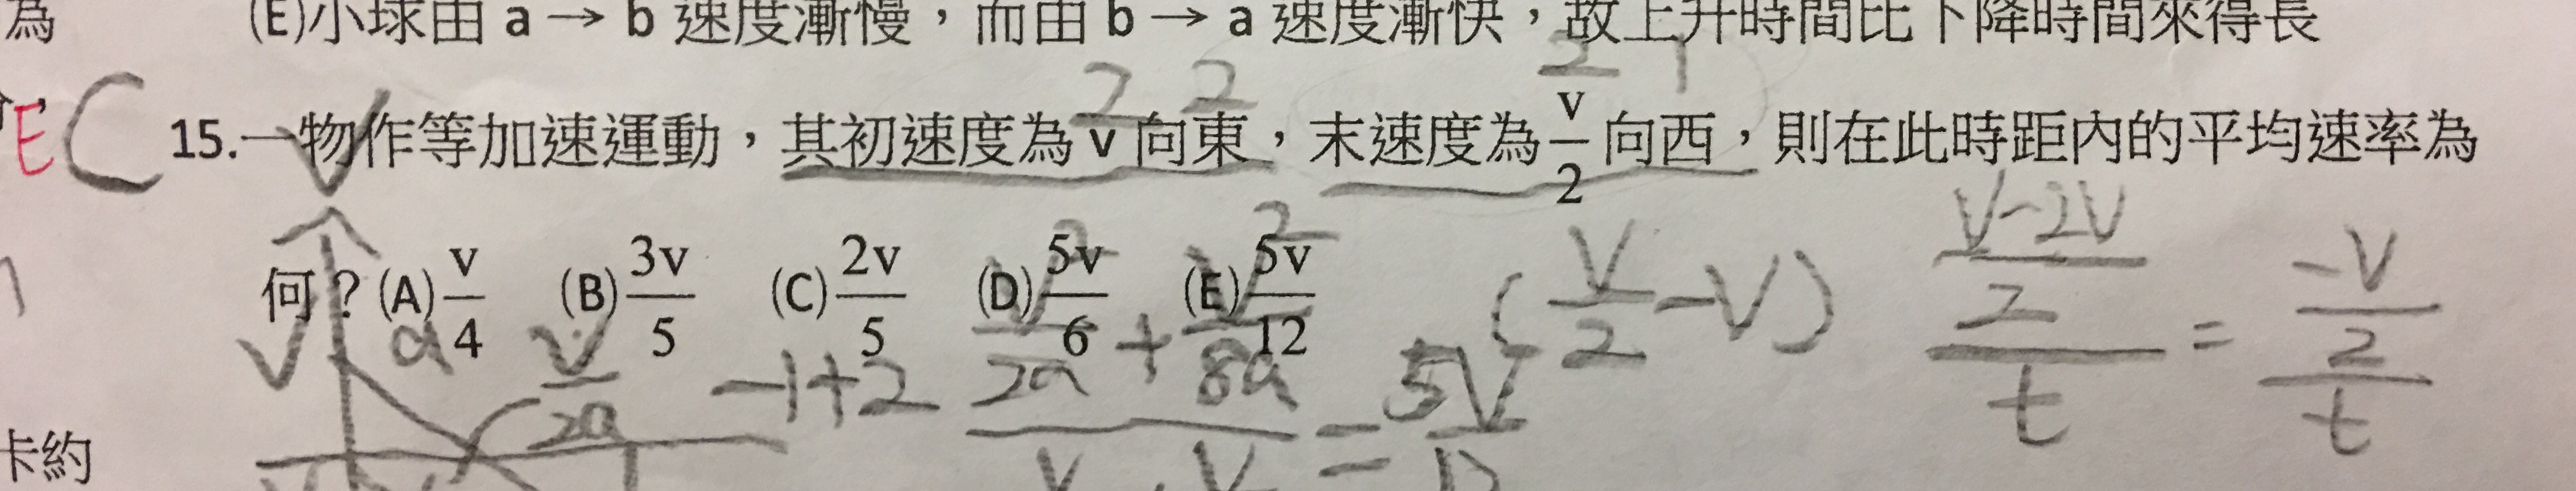 為
(E)小球由 a → b 速度漸慢，而由 b → a 速度漸快，故上升時間比下降時間來得長
E C 15.一物作等加速運動，其初速度為 v 向東，末速度為 v/2 向西，則在此時距內的平均速率為
何？(A) v/4 (B) 3v/5 (C) 2v/5 (D) 5v/6 (E) 5v/12
2 2
2 1
(V/2 - V)
V-2V
2
t
=
-V
2
t
V
a
V/2a
-1+2
V²/2a + V²/8a
= 5V
卡約